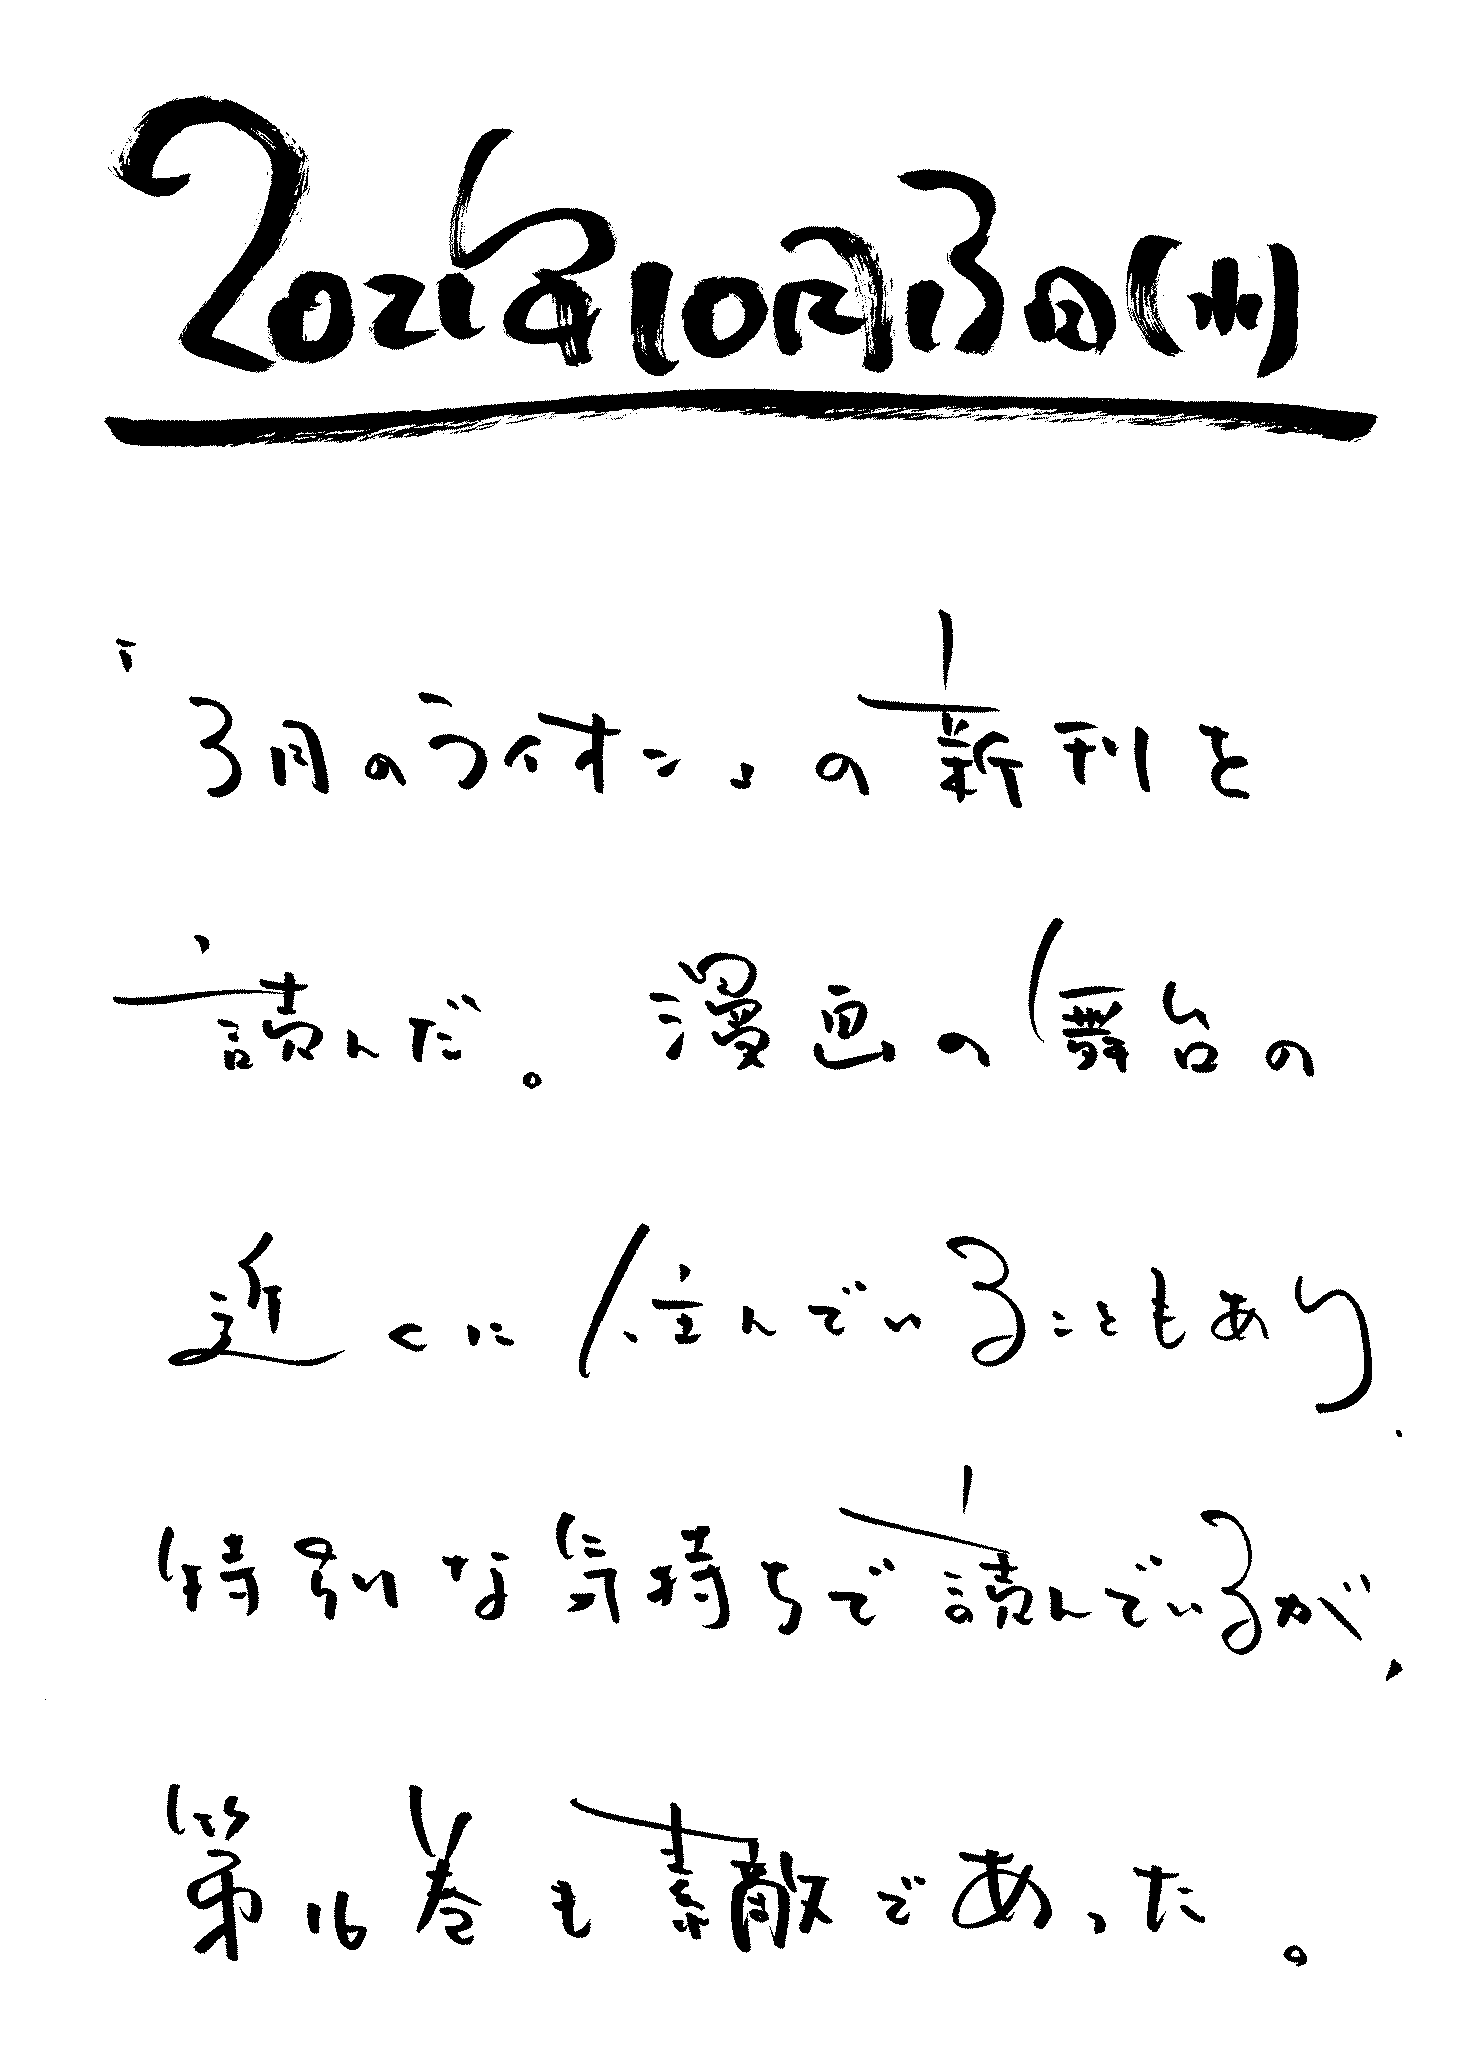 2021年10月13日(水)
『3月のライオン』の新刊を
読んだ。漫画の舞台の
近くに住んでいることもあり、
特別な気持ちで読んでいるが、
第16巻も素敵であった。